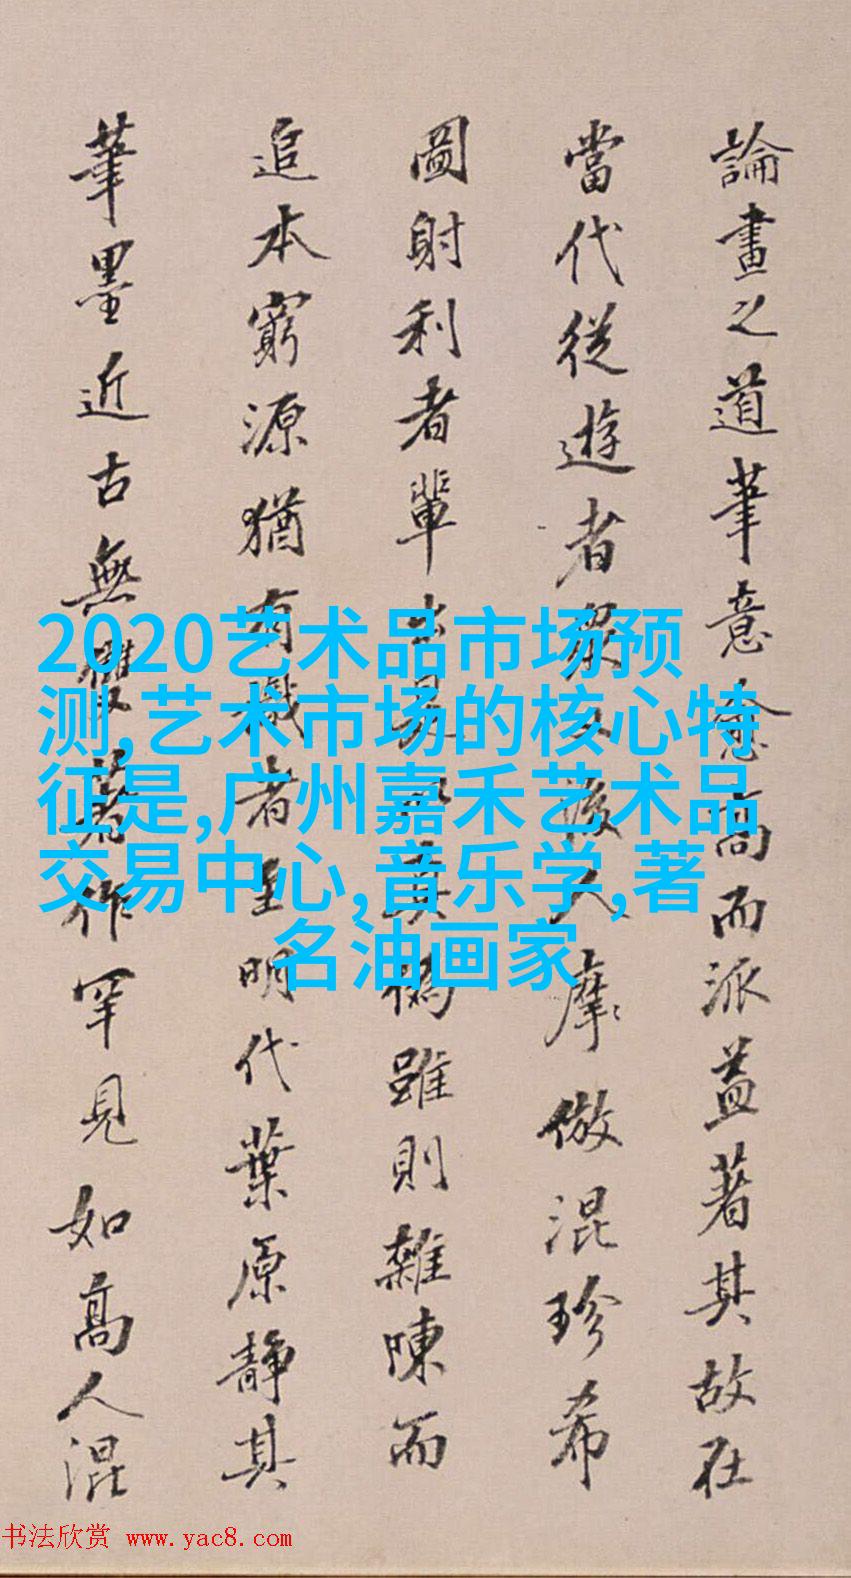 論畫之道筆意愈高而派益著其故在
當代從遊者眾後人摩倣混珍希
圖射利者輩出真偽雖則雜陳而
追本窮源猶有識者至明代葉原靜其
筆墨近古無雙著作罕見如高人混
2020艺术品市场预
测,艺术市场的核心特
征是,广州嘉禾艺术品
交易中心,音乐学,著
名油画家
书法欣赏 www.yac8.com